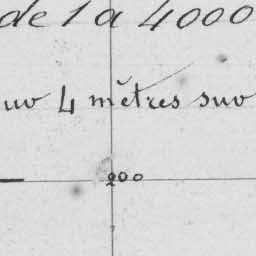 de 1 à 4000
4 mètres sur
200